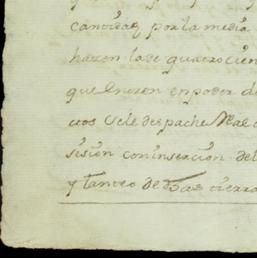 cantidad, por la media
hacen la de quatrocien
que entren en poder d
tos Se le despache Real
sision con insercion del
y tanteo de dhas tierra